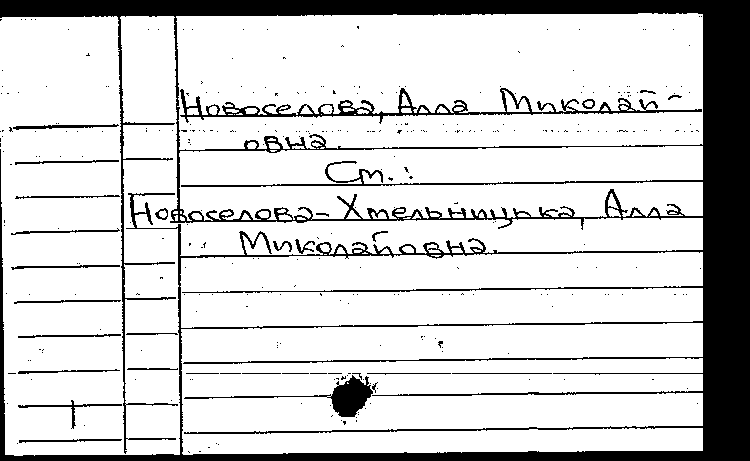 Новоселова, Алла Миколай-
овна.
См.:
Новоселова-Хмельницька, Алла
Миколайовна.